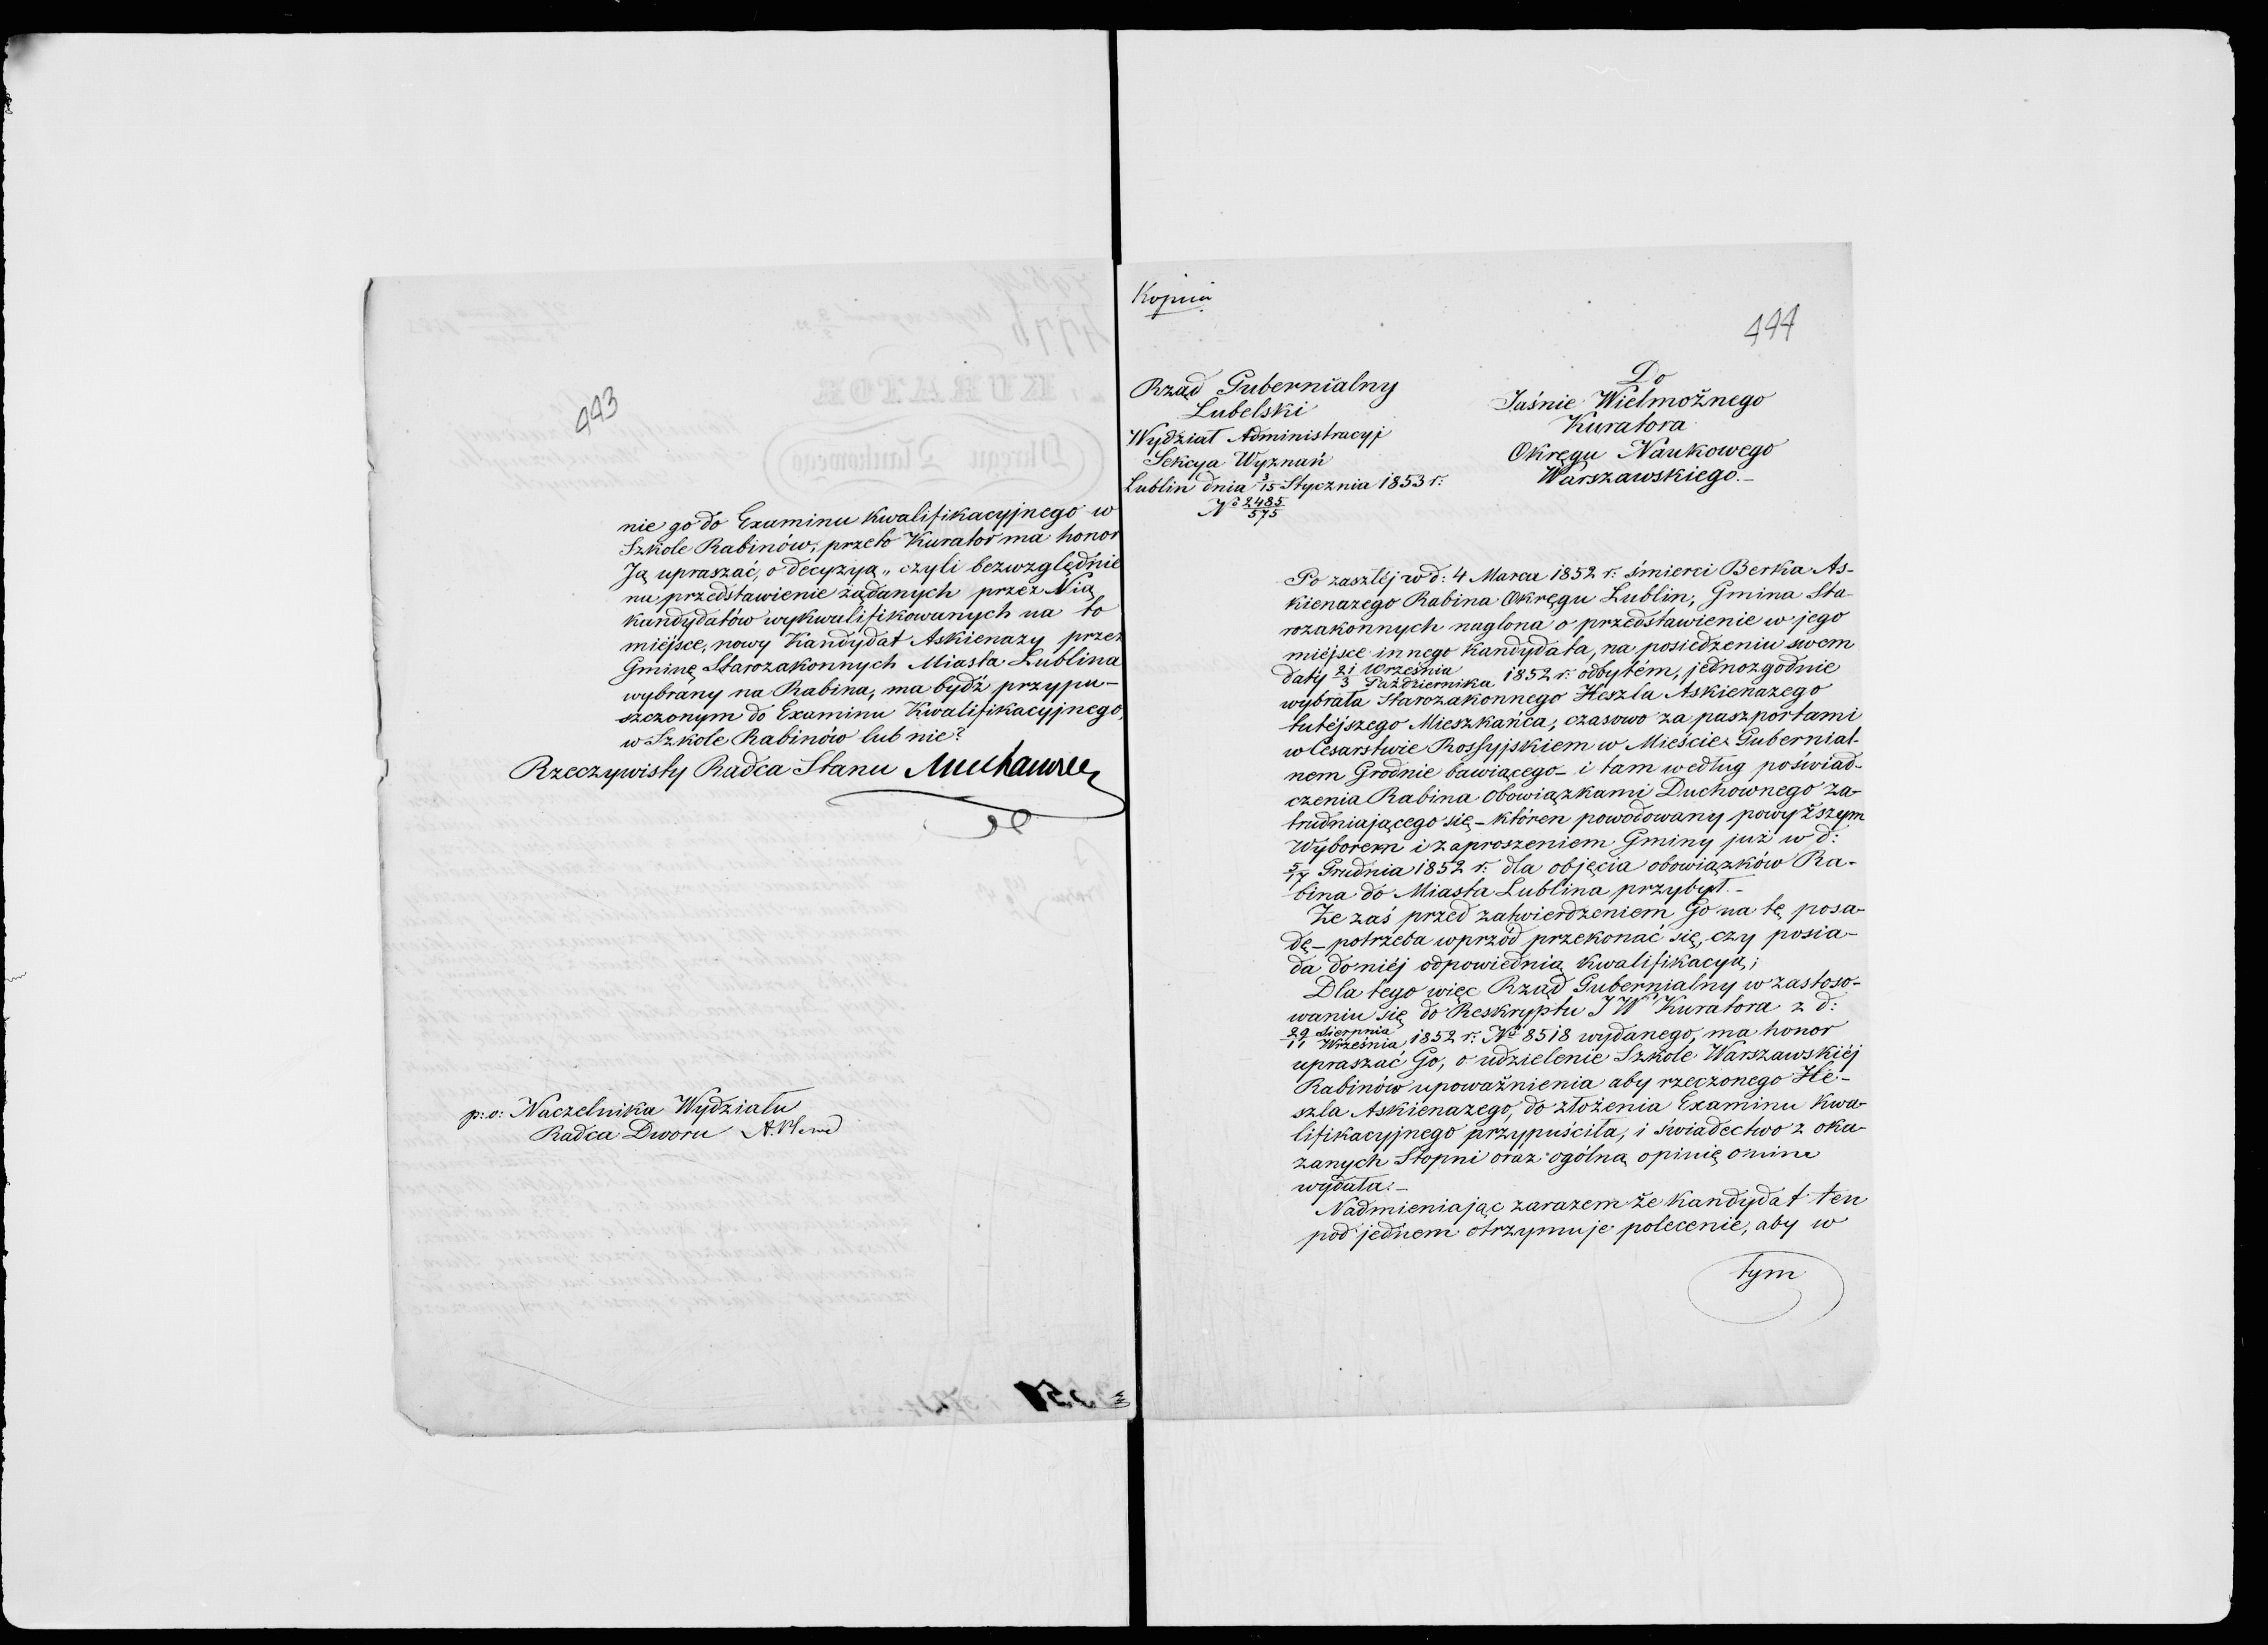 443
nie go do Examinu Kwalifikacyjnego w
Szkole Rabinów, przeto Kurator ma honor
Ją upraszać, o decyzyą „ czyli bezwzględnie
na przedstawienie żądanych przez Nią
kandydatów wykwalifikowanych na to
miejsce, nowy Kandydat Askienazy przez
Gminę Starozakonnych Miasta Lublina
wybrany na Rabina, ma bydź przypu-
szczonym do Examinu Kwalifikacyjnego,
w Szkole Rabinów lub nie?
Rzeczywisty Radca Stanu
p: o: Naczelnika Wydziału
Radca Dworu
Kopia
444
Rząd Gubernialny
Lubelski
Wydział Administracyj
Sekcya Wyznań
Lublin dnia 3/15 Stycznia 1853 r:
No 2485/575
Do
Jaśnie Wielmożnego
Kuratora
Okręgu Naukowego
Warszawskiego.-
Po zaszłej w d: 4 Marca 1852 r: śmierci Berka As-
kienazego Rabina Okręgu Lublin, Gmina Sta-
rozakonnych naglona o przedstawienie w jego
miejsce innego Kandydata, na posiedzeniu swem
daty 21 Września/3 Października 1852 r: odbytém, jednozgodnie
wybrała Starozakonnego Heszla Askienazego
tutéjszego Mieszkańca, czasowo za paszportami
w Cesarstwie Rossyjskiem w Mieście Gubernial-
nem Grodnie bawiącego - i tam według poświad-
czenia Rabina Obowiązkami Duchownego za-
trudniającego się - któren powodowany powyższym
Wyborem i zaproszeniem Gminy już w d:
5/17 Grudnia 1852 r: dla objęcia obowiązków Ra-
bina do Miasta Lublina przybył.-
Że zaś przed zatwierdzeniem Go na tę posa-
dę - potrzeba wprzód przekonać się, czy posia-
da do niéj odpowiednią Kwalifikacyą;
Dla tego więc Rząd Gubernialny w zastoso-
waniu się do Reskryptu JW Kuratora z d:
29 Sierpnia/11 Września 1852 r: No 8518 wydanego, ma honor
upraszać Go, o udzielenie Szkole Warszawskiéj
Rabinów upoważnienia aby rzeczonego He-
szla Askienazego, do złożenia Examinu Kwa-
lifikacyjnego przypuściła, i świadectwo z oka-
zanych Stopni oraz ogólną opinię o nim
wydała.-
Nadmieniając zarazem że Kandydat ten
pod jednem otrzymuje polecenie, aby w
tym